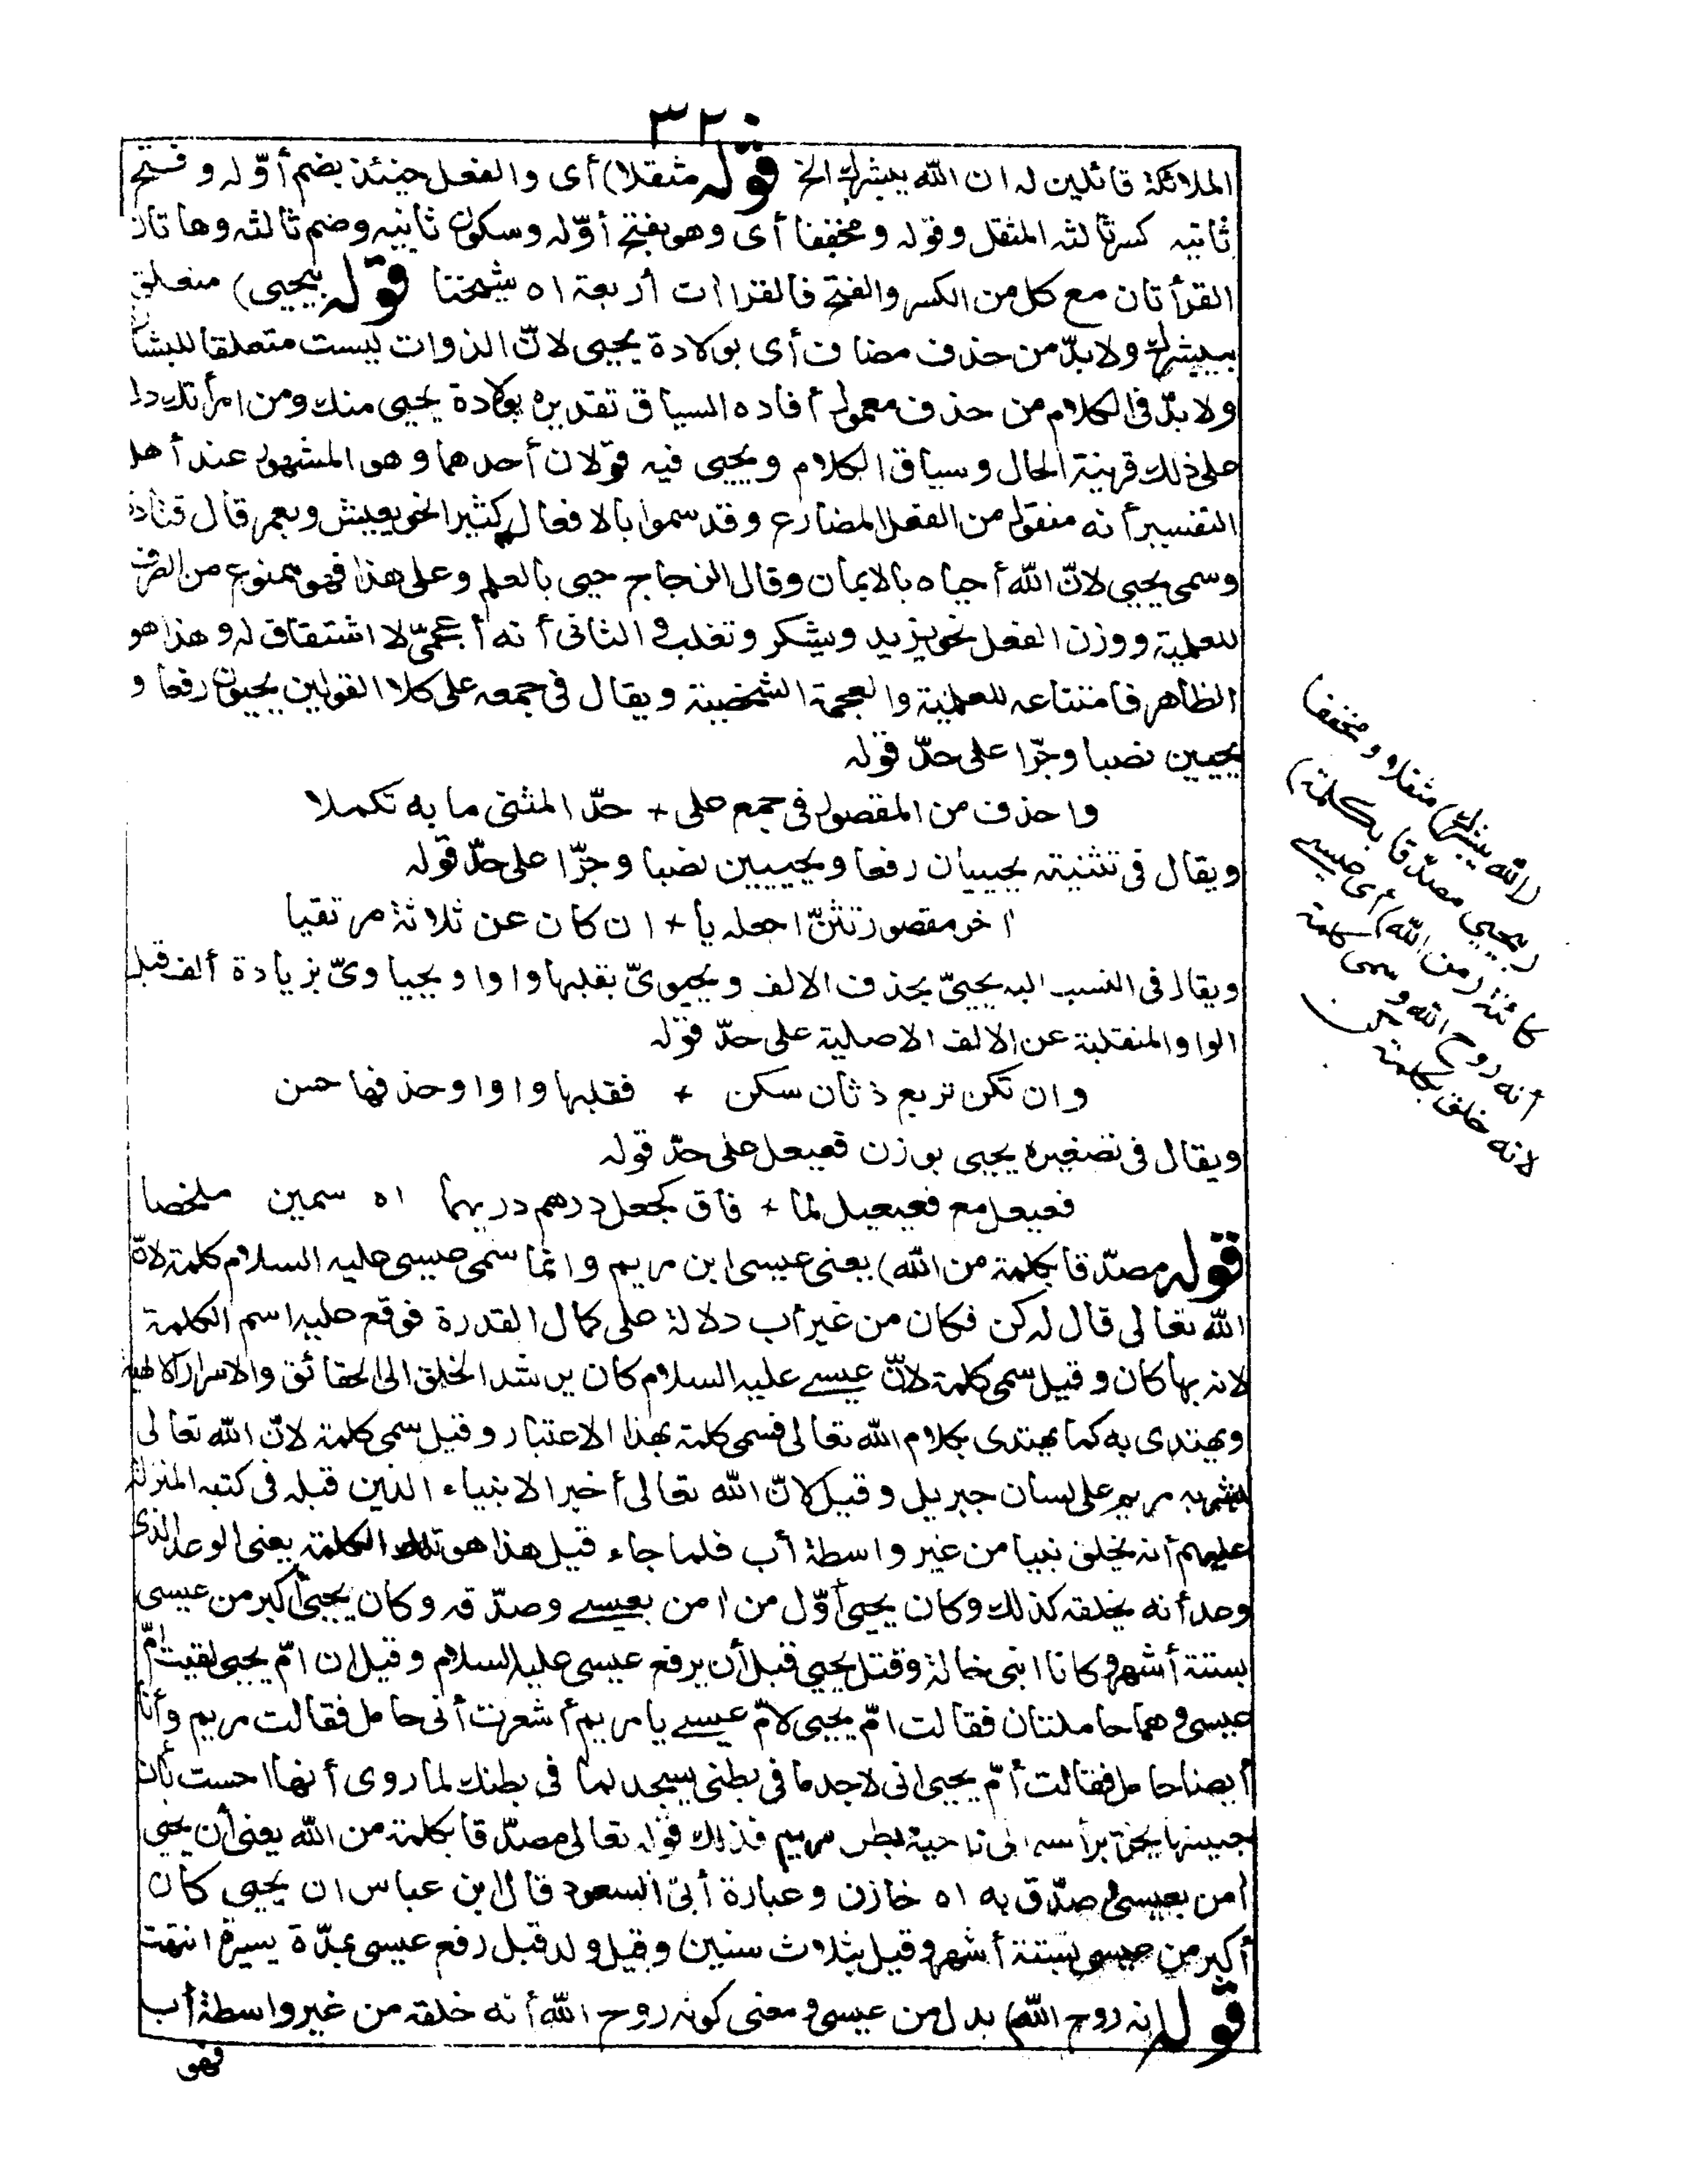 ٣٢٠
الملائكة قائلين له ان الله يبشرك الخ قوله مثقلا) أى والفعل حينئذ بضم أوّله وفتح
ثانيه كسر ثالثه المثقل وقوله ومخففا أى وهو بفتح أوّله وسكون ثانيه وضم ثالثه وهاتان
القرأتان مع كل من الكسر والفتح فالقراات أربعة اه شيخنا قوله بيحيى) متعلق
بيبشرك ولا بدّ من حذف مضاف أى بولادة يحيى لانّ الذوات ليست متعلقا للبشا
ولا بدّ فى الكلام من حذف معمول أفاده السياق تقديره بولادة يحيى منك ومن امرأتك دل
على ذلك قرينة الحال وسياق الكلام ويحيى فيه قولان أحدهما وهو المشهور عند أهل
التفسير أنه منقول من الفعل المضارع وقد سموا بالافعال كثيرا نحو يعيش ويعمر قال قتادة
وسمى يحيى لانّ الله أحياه بالايمان وقال الزجاج حيى بالعلم وعلى هذا فهو ممنوع من الصرف
للعلمية ووزن الفعل نحو يزيد ويشكر وتغلب والثانى أنه أعجمىّ لا اشتقاق له وهذا هو
الظاهر فامتناعه للعلمية والعجمة الشخصية ويقال فى جمعه على كلا القولين يحيون رفعا و
يحيين نصبا وجرّا على حدّ قوله
واحذف من المقصور فى جمع على + حدّ المثنى ما به تكملا
ويقال فى تثنيته يحييان رفعا ويحييين نصبا وجرّا على حدّ قوله
اخر مقصور تثنّ اجعله يا + ان كان عن ثلاثة مرتقيا
ويقال فى النسب اليه يحيىّ بحذف الالف ويحيوىّ بقلبها واوا ويحياوىّ بزيادة ألف قبل
الواو المنقلبة عن الالف الاصلية على حدّ قوله
وان تكن تربع ذ ثان سكن + فقلبها واوا وحذفها حسن
ويقال فى تصغيره يحيى بوزن فعيعل على حدّ قوله
فعيعل مع فعيعيل لما + فاق كجعل درهم دريهما اه سمين ملخصا
قوله مصدّقا بكلمة من الله) يعنى عيسى ابن مريم وانما سمى عيسى عليه السلام كلمة لانّ
الله تعالى قال له كن فكان من غير أب دلالة على كمال القدرة فوقع عليه اسم الكلمة
لانه بها كان وقيل سمى كلمة لانّ عيسى عليه السلام كان يرشد الخلق الى الحقائق والاسرار الالهية
ويهتدى به كما يهتدى بكلام الله تعالى فسمى كلمة بهذا الاعتبار وقيل سمى كلمة لانّ الله تعالى
بشر به مريم على لسان جبريل وقيل لانّ الله تعالى أخبر الانبياء الذين قبله فى كتبه المنزلة
عليهم أنه يخلق نبيا من غير واسطة أب فلما جاء قيل هذا هو تلك الكلمة يعنى الوعد الذى
وعد أنه يخلقه كذلك وكان يحيى أوّل من امن بعيسى وصدّقه وكان يحيى أكبر من عيسى
بستة أشهر وكانا ابنى خالة وقتل يحيى قبل أن يرفع عيسى عليه السلام وقيل ان امّ يحيى لقيت امّ
عيسى وهما حاملتان فقالت امّ يحيى لامّ عيسى يا مريم أشعرت أنى حامل فقالت مريم وأنا
أيضا حامل فقالت أمّ يحيى انى لاجد ما فى بطنى يسجد لما فى بطنك لما روى أنها احست بأن
جنينها يخرّ برأسه الى ناحية بطن مريم فذلك قوله تعالى مصدّقا بكلمة من الله يعنى أن يحيى
امن بعيسى وصدّق به اه خازن وعبارة أبى السعود قال ابن عباس ان يحيى كان
أكبر من عيسى بستة أشهر وقيل بثلاث سنين وقيل ولد قبل رفع عيسى بمدّة يسيرة انتهت
قوله انه روح الله) بدل من عيسى ومعنى كونه روح الله أنه خلقه من غير واسطة أب
فهو
(الله يبشرك) مثقلا ومخففا
(بيحيى مصدّقا بكلمة)
كائنة (من الله) أى عيسى
أنه روح الله وسمى كلمة
لانه خلق بكلمة كن